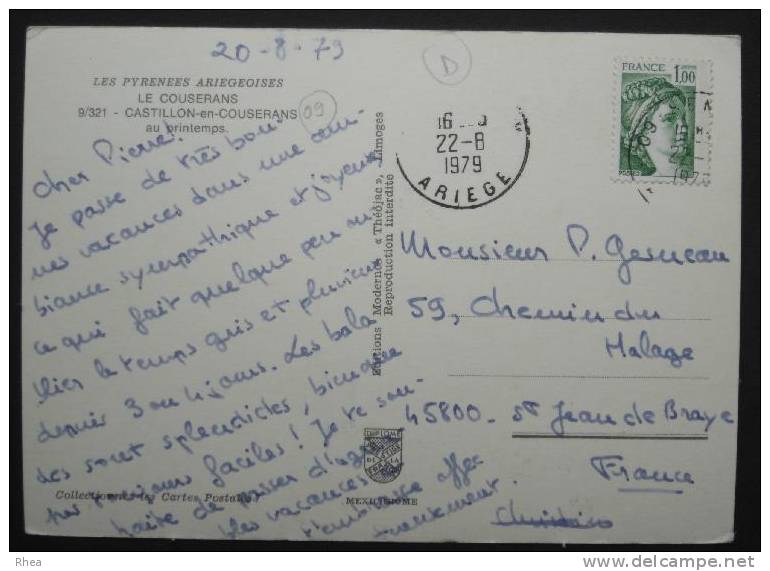 20-8-79
D
LES PYRENEES ARIEGEOISES
LE COUSERANS
9/321 - CASTILLON-en-COUSERANS
au printemps.
09
Cher Pierre!
Je passe de très bon-
nes vacances dans une am-
biance sympathique et joyeuse
ce qui fait quelque peu ou-
blier le temps gris et pluvieux
depuis 3 ou 4 jours. Les bala-
des sont splendides, bien que
pas toujours faciles! Je te sou-
haite de passer d'agréa
bles vacances
t'embrasse affec
tueusement.
Collectionnez les Cartes Postales
Editions Modernes « Théojac », Limoges
Reproduction interdite
MEXICHROME
FRANCE 1,00
POSTES
16
22-8
1979
ARIEGE
Monsieur P. Gesneau
59, Chemin du
Malage
45800 - St Jean de Braye
France
Rhea
www.delcampe.net